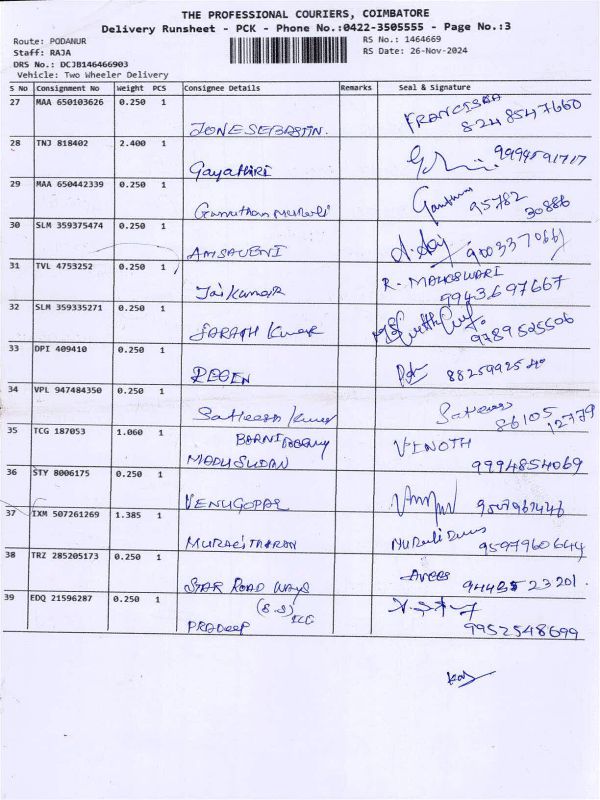 THE PROFESSIONAL COURIERS, COIMBATORE
Delivery Runsheet - PCK - Phone No.:0422-3505555 - Page No.:3
Route: PODANUR
RS No.: 1464669
Staff: RAJA
RS Date: 26-Nov-2024
DRS No.: DCJB146466903
Vehicle: Two Wheeler Delivery
S No Consignment No Weight PCS Consignee Details Remarks Seal & Signature
27 MAA 650103626 0.250 1
JONESEBASTIN. 8248547660
28 TNJ 818402 2.400 1
Gayathiri 9994591717
29 MAA 650442339 0.250 1
95782
30886
30 SLM 359375474 0.250 1
AMSAVENI 9003370661
31 TVL 4753252 0.250 1
R. MAHESWARI
Jai Kumar 9943697667
32 SLM 359335271 0.250 1
SARATH Kumar 9789505506
33 DPI 409410 0.250 1
REGEN
34 VPL 947484350 0.250 1
Satheesh Kumar 86105 12779
35 TCG 187053 1.060 1
BARNI VINOTH
MADUSUDAN 9994854069
36 STY 8006175 0.250 1
VENUGOPAL
37 IXM 507261269 1.385 1
MURALITHARAN 9597960644
38 TRZ 285205173 0.250 1
STAR ROAD WAYS 9442523201.
39 EDQ 21596287 0.250 1
(S.S)
Pradeep 9952548699